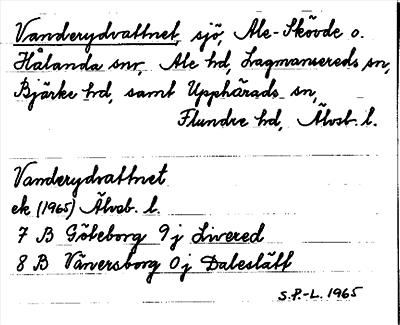 Vanderydvattnet, sjö, Ale-Skövde o.
Hålanda snr, Ale hd, Lagmansereds sn,
Bjärke hd, samt Upphärads sn,
Flundre hd, Älvsb. l.
Vanderydvattnet
ek (1965) Älvsb. l.
7 B Göteborg 9 j Livered
8 B Vänersborg 0 j Daleslätt
S.P.-L. 1965